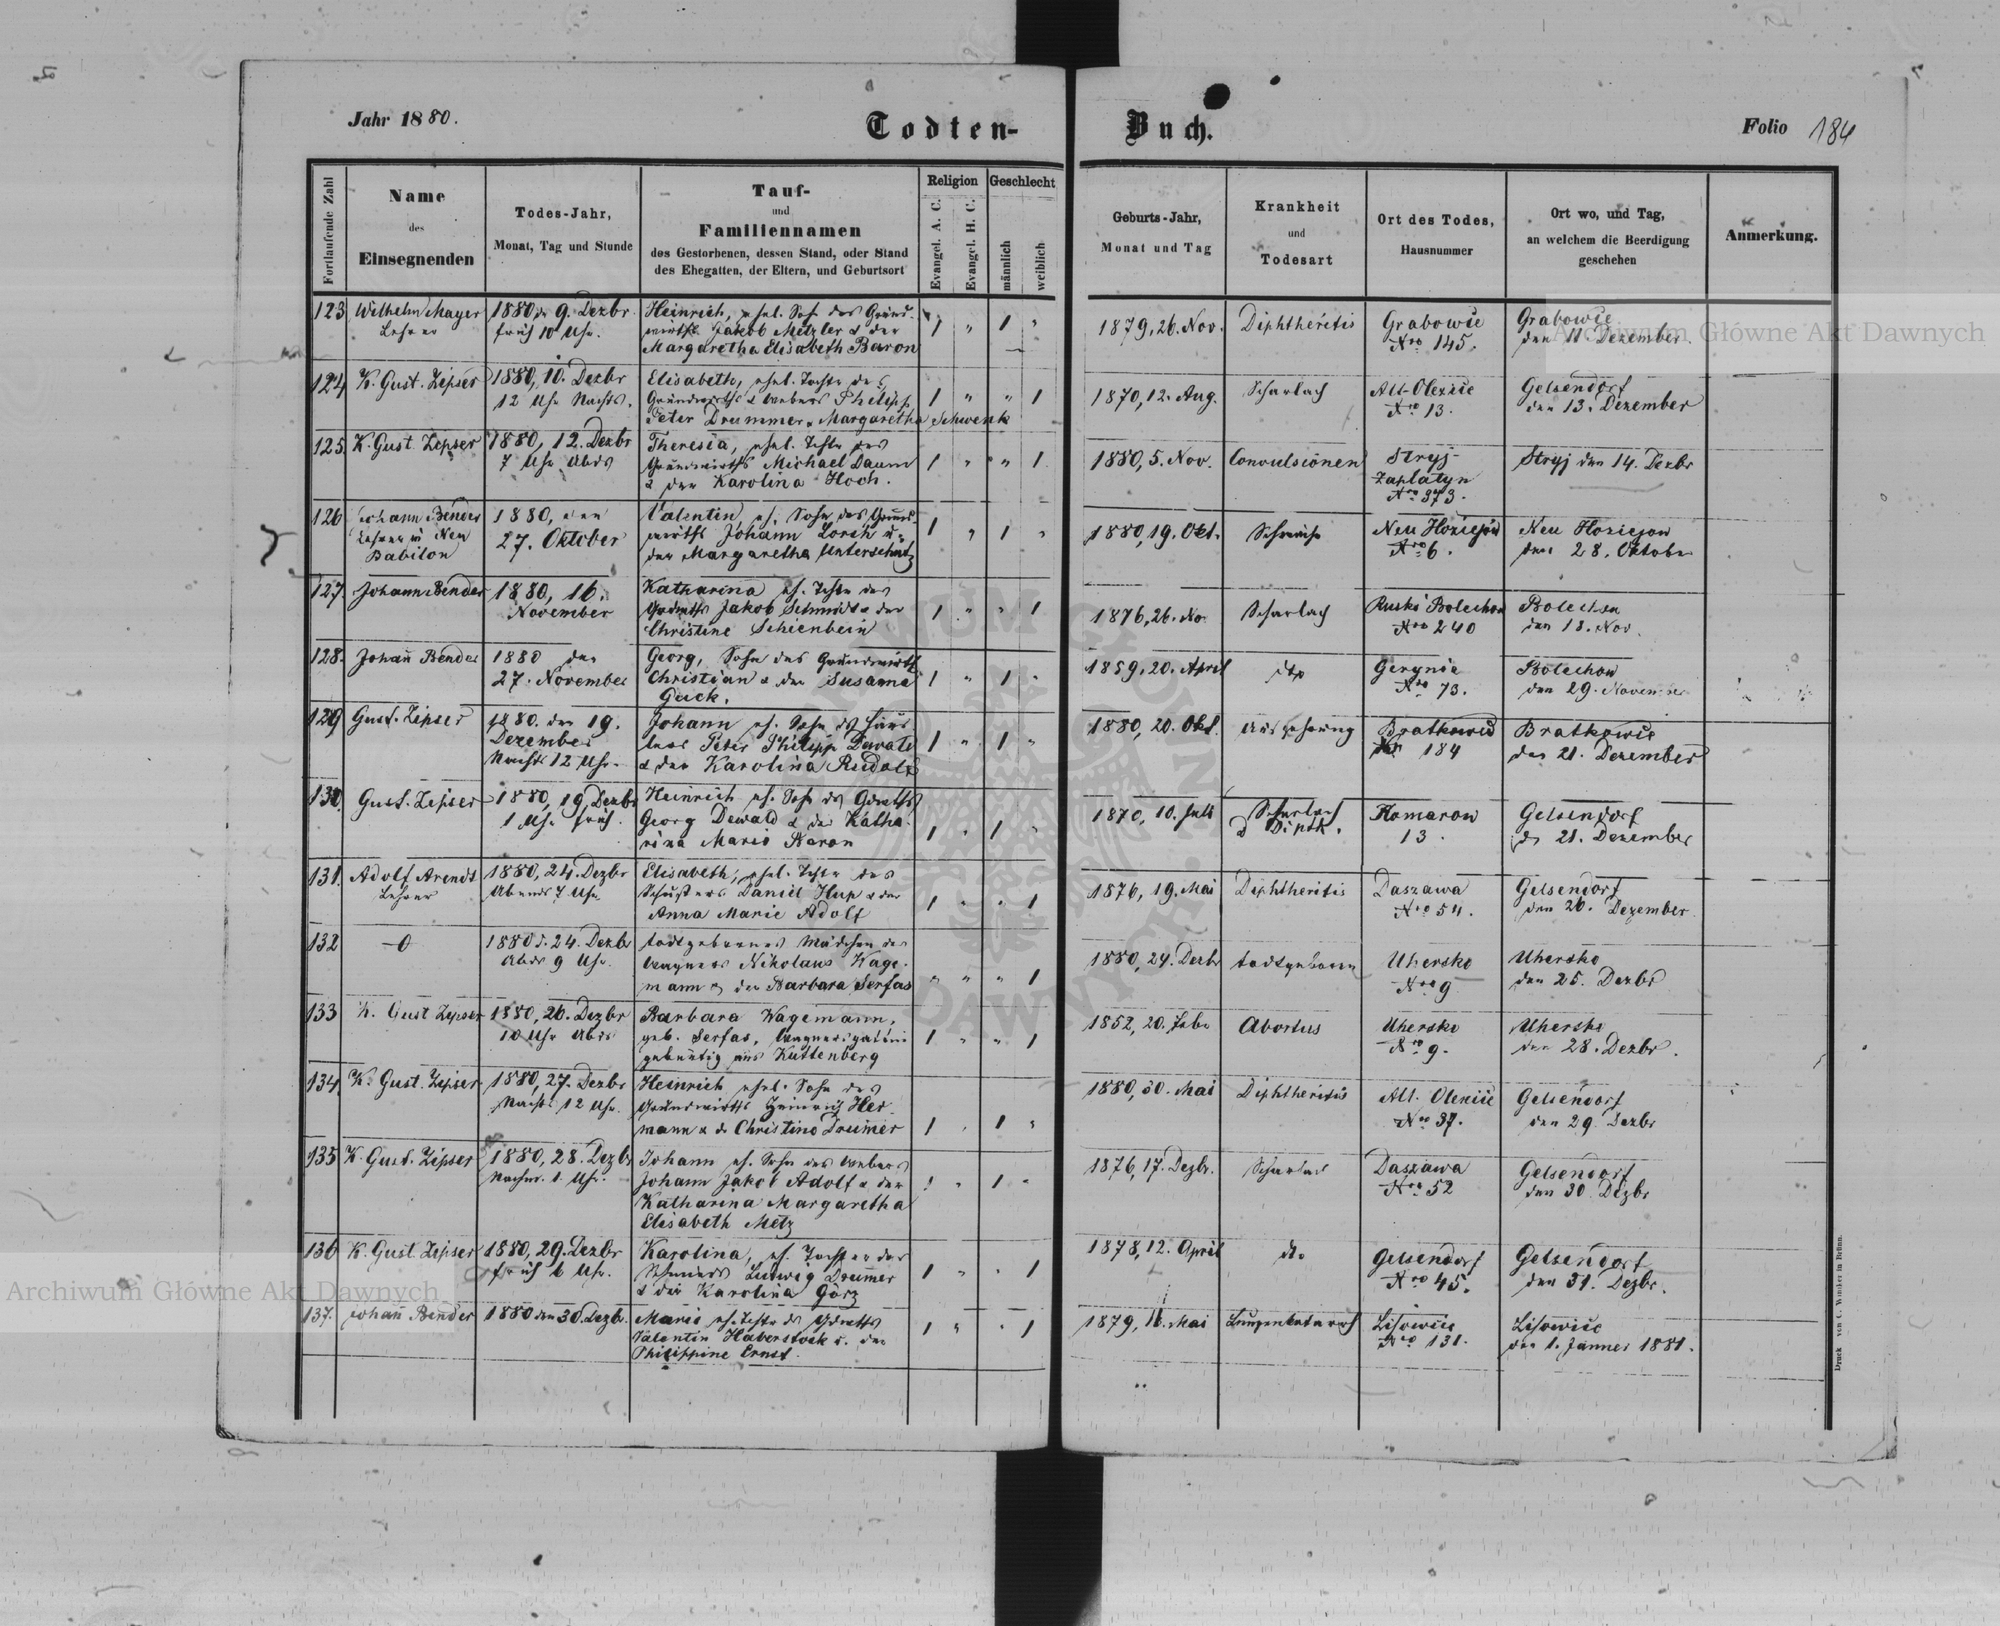 Jahr 1880.
Todten-Buch.
Folio 184
Fortlaufende Zahl
Name
des
Einsegnenden
Todes-Jahr,
Monat, Tag und Stunde
Tauf-
und
Familiennamen
des Gestorbenen, dessen Stand, oder Stand
des Ehegatten, der Eltern, und Geburtsort
Religion
Evangel. A. C.
Evangel. H. C.
Geschlecht
männlich
weiblich
Geburts-Jahr,
Monat und Tag
Krankheit
und
Todesart
Ort des Todes,
Hausnummer
Ort wo, und Tag,
an welchem die Beerdigung
geschehen
Anmerkung.
123 Wilhelm Mayer
Lehrer
1880 9. Dezbr.
früh 10 Uhr.
Heinrich, ehel. Sohn des Grund-
wirths Jakob Metzler & der
Margaretha Elisabeth Baron
1 " 1 "
1879, 26. Nov.
Diphtheritis
Grabowie
Nro 145.
Grabowie
den 11 Dezember
124 K. Gust. Zipser
1880, 10. Dezbr
12 Uhr Nachts.
Elisabeth, ehel. Tochter des
Grundwirths & Webers Philipp
Peter Drummer & Margaretha Schwenk
1 " " 1
1870, 12. Aug.
Scharlach
Alt-Olexice
Nro 13.
Gelsendorf
den 13. Dezember
125. K. Gust. Zipser
1880, 12. Dezbr
7 Uhr Abds
Theresia, ehel. Tochter des
Grundwirths Michael Daum
& der Karolina Hoch.
1 " " 1
1880, 5. Nov.
Convulsionen
Stryj-
Zaplatyn
Nro 373.
Stryj den 14. Dezbr
126 Johann Bender
Lehrer in Neu
Babilon
1880, den
27. Oktober
Valentin eh. Sohn des Grund-
wirths Johann Lorch u.
der Margaretha Unterschutz
1 " 1 "
1880, 19. Okt.
Schwäche
Neu Hoziejow
Nro 6.
Neu Hoziejow
den 28. Oktober
127. Johann Bender
1880, 16.
November
Katharina eh. Tochter des
Jakob Schmidt & der
Christine Schienbein
1 " " 1
1876, 26. Nov.
Scharlach
Ruski Bolechow
Nro 240
Bolechow
den 18. Nov.
128. Johañ Bender
1880 den
27. November
Georg, Sohn des Grundwirths
Christian & der Susanna
Guck.
1 " 1 "
1859, 20. April
dto
Gerynia
Nro 73.
Bolechow
den 29. November
129 Gust. Zipser
1880. den 19.
Dezember
Nachts 12 Uhr.
Johann eh. Sohn des
Peter Philipp Dewald
& der Karolina Rudolf
1 " 1 "
1880, 20. Okt.
Auszehrung
Bratkowce
184
Bratkowce
den 21. Dezember
130. Gust. Zipser
1880, 19, Dezbr
1 Uhr früh.
Heinrich eh. Sohn des
Georg Dewald & der Katha-
rina Marie Baron
1 " 1 "
1870, 10. Juli
Scharlach
& Dipth.
Komarow
13.
Gelsendorf
21. Dezember
131. Adolf Arendt
Lehrer
1880, 24. Dezbr
Abends 7 Uhr
Elisabeth, ehel. Tochter des
Schusters Daniel Hup & der
Anna Marie Adolf
1 " " 1
1876, 19. Mai
Diphtheritis
Daszawa
Nro 54.
Gelsendorf
den 26. Dezember
132 -0
1880 d. 24. Dezbr
Abds 9 Uhr.
todtgeborenes Mädchen des
Wagners Nikolaus Wage-
mann & der Barbara Serfas
" " " 1
1880, 24. Dezbr
todtgeboren
Uhersko
Nro 9
Uhersko
den 25. Dezbr
133 K. Gust Zipser
1880, 26. Dezbr
10 Uhr Abds
Barbara Wagemann,
geb. Serfas, Wagnersgattin
gebürtig aus Kuttenberg
1 " " 1
1852, 20. Febr
Abortus
Uhersko
Nro 9.
Uhersko
den 28. Dezbr.
134. K. Gust. Zipser
1880, 27. Dezbr
Nachts 12 Uhr.
Heinrich ehel. Sohn des
Grundwirths Heinrich Her-
mann & d. Christine Drumer
1 " 1 "
1880, 30. Mai
Diphtheritis
Alt. Olexice
Nro 37.
Gelsendorf
den 29 Dezbr
135 K. Gust. Zipser
1880, 28. Dezbr
Nachm. 1. Uhr.
Johann eh. Sohn des Webers
Johann Jakob Adolf & der
Katharina Margaretha
Elisabeth Metz
1 " 1 "
1876, 17. Dezbr.
Scharlach
Daszawa
Nro 52
Gelsendorf
den 30 Dezbr
136 K. Gust. Zipser
1880, 29. Dezbr
früh 6 Uhr.
Karolina, eh. Tochter des
Ludwig Drum̄er
& der Karolina Görz
1 " " 1
1878, 12. April
dto
Gelsendorf
Nro 45.
Gelsendorf
den 31. Dezbr.
137. Johañ Bender
1880 den 30. Dezbr.
Marie eh. Tochter d.
Valentin Haberstock u. der
Philippine Ernst.
1 " " 1
1879, 16. Mai
Lungenkatarrh
Lisowice
Nro 131.
Lisowice
den 1. Jänner 1881.
Druck von C. Winiker in Brünn.
Archiwum Główne Akt Dawnych
Archiwum Główne Akt Dawnych